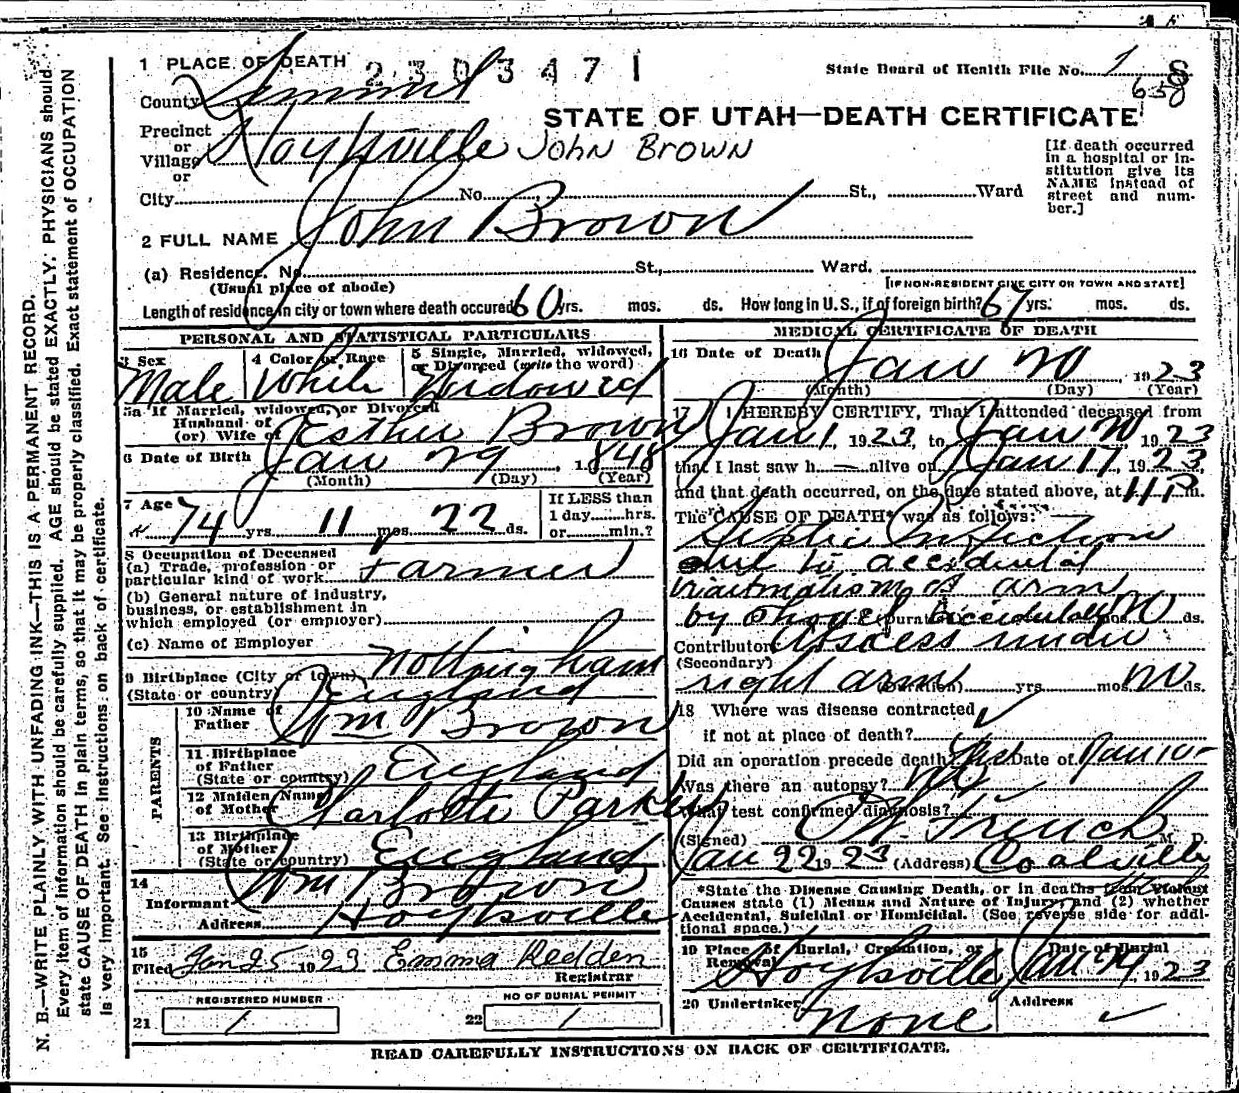 1 PLACE OF DEATH 2303471
State Board of Health File No. 1
658
County Summit
STATE OF UTAH—DEATH CERTIFICATE
Precinct
or
Village Hoytsville John Brown
or
City No. St., Ward
[If death occurred
in a hospital or in-
stitution give its
NAME instead of
street and num-
ber.]
2 FULL NAME John Brown
(a) Residence. No. St., Ward.
(Usual place of abode) [IF NON-RESIDENT GIVE CITY OR TOWN AND STATE]
Length of residence in city or town where death occured 60 yrs. mos. ds. How long in U. S., if of foreign birth? 67 yrs. mos. ds.
PERSONAL AND STATISTICAL PARTICULARS
3 Sex
Male
4 Color or Race
White
5 Single, Married, widowed,
or Divorced (write the word)
Widowed
5a If Married, widowed, or Divorced
Husband of
(or) Wife of Esther Brown
6 Date of Birth Jan 29, 1848
(Month) (Day) (Year)
7 Age 74 yrs. 11 mos. 22 ds.
If LESS than
1 day hrs.
or min.?
8 Occupation of Deceased
(a) Trade, profession or
particular kind of work Farmer
(b) General nature of industry,
business, or establishment in
which employed (or employer)
(c) Name of Employer
9 Birthplace (City or town) Nottingham
(State or country) England
PARENTS
10 Name of
Father Wm Brown
11 Birthplace
of Father
(State or country) England
12 Maiden Name
of Mother Charlotte Parks
13 Birthplace
of Mother
(State or country) England
14
Informant Wm Brown
Address Hoytsville
15
Filed Jan 25 1923 Emma Redden
Registrar
REGISTERED NUMBER
21 1
NO OF BURIAL PERMIT
22 1
MEDICAL CERTIFICATE OF DEATH
16 Date of Death Jan 20 1923
(Month) (Day) (Year)
17 I HEREBY CERTIFY, That I attended deceased from
Jan 1 1923, to Jan 20 1923
that I last saw h alive on Jan 17, 1923,
and that death occurred, on the date stated above, at 11 P m.
The CAUSE OF DEATH* was as follows:
Septic Infection
due to accidental
traumatism of arm
by (Duration) mos. 20 ds.
Contributory Abscess under
(Secondary)
right arm (Duration) yrs. mos. 20 ds.
18 Where was disease contracted
if not at place of death?
Did an operation precede death? Yes Date of Jan 10-
Was there an autopsy? No
What test confirmed diagnosis?
(Signed) M. D.
Jan 22 1923 (Address) Coalville
*State the Disease Causing Death, or in deaths from Violent
Causes state (1) Means and Nature of Injury and (2) whether
Accidental, Suicidal or Homicidal. (See reverse side for addi-
tional space.)
19 Place of Burial, Cremation, or
Removal Hoytsville
Date of Burial
Jan 24 1923
20 Undertaker Address
none
READ CAREFULLY INSTRUCTIONS ON BACK OF CERTIFICATE.
N. B.—WRITE PLAINLY WITH UNFADING INK—THIS IS A PERMANENT RECORD.
Every item of information should be carefully supplied. AGE should be stated EXACTLY. PHYSICIANS should
state CAUSE OF DEATH in plain terms, so that it may be properly classified. Exact statement of OCCUPATION
is very important. See instructions on back of certificate.